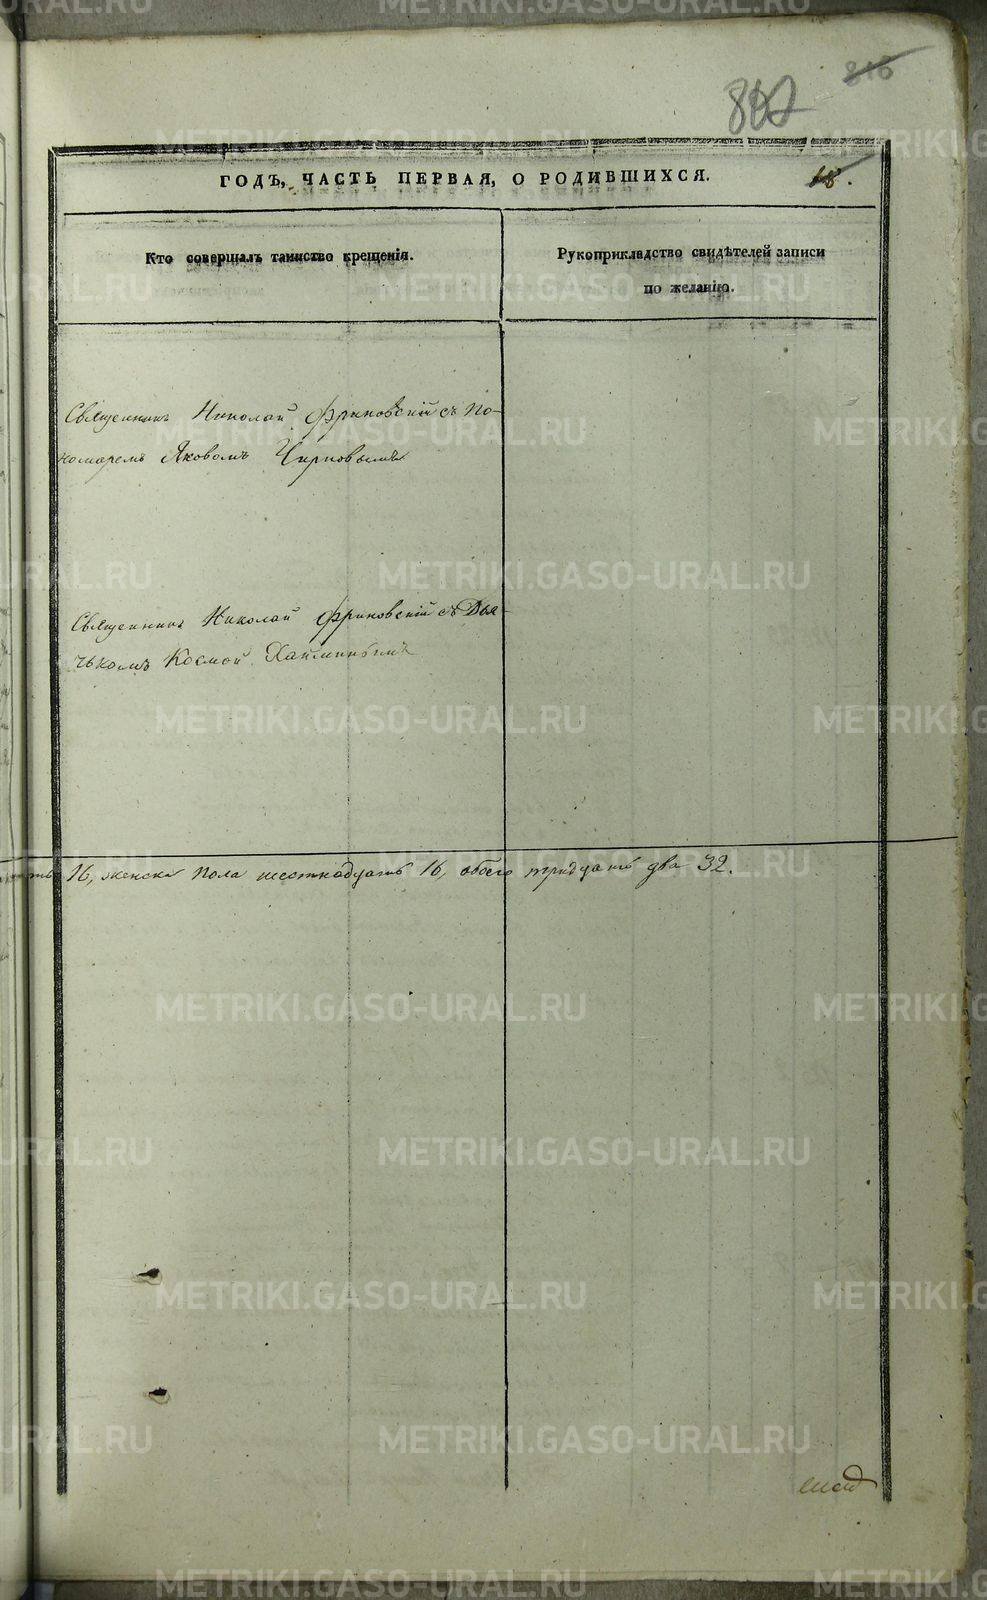 816
802
ГОДЪ, ЧАСТЬ ПЕРВАЯ, О РОДИВШИХСЯ.
18.
Кто совершалъ таинство крещенія.
Рукоприкладство свидѣтелей записи
по желанію.
Священникъ Николай Фриновскій съ По-
номаремъ Яковомъ Чирковымъ
Священникъ Николай Фриновскій съ Дья-
чькомъ Космой
16, женска пола шестнадцать 16, обоего тридцать два 32.
METRIKI.GASO-URAL.RU